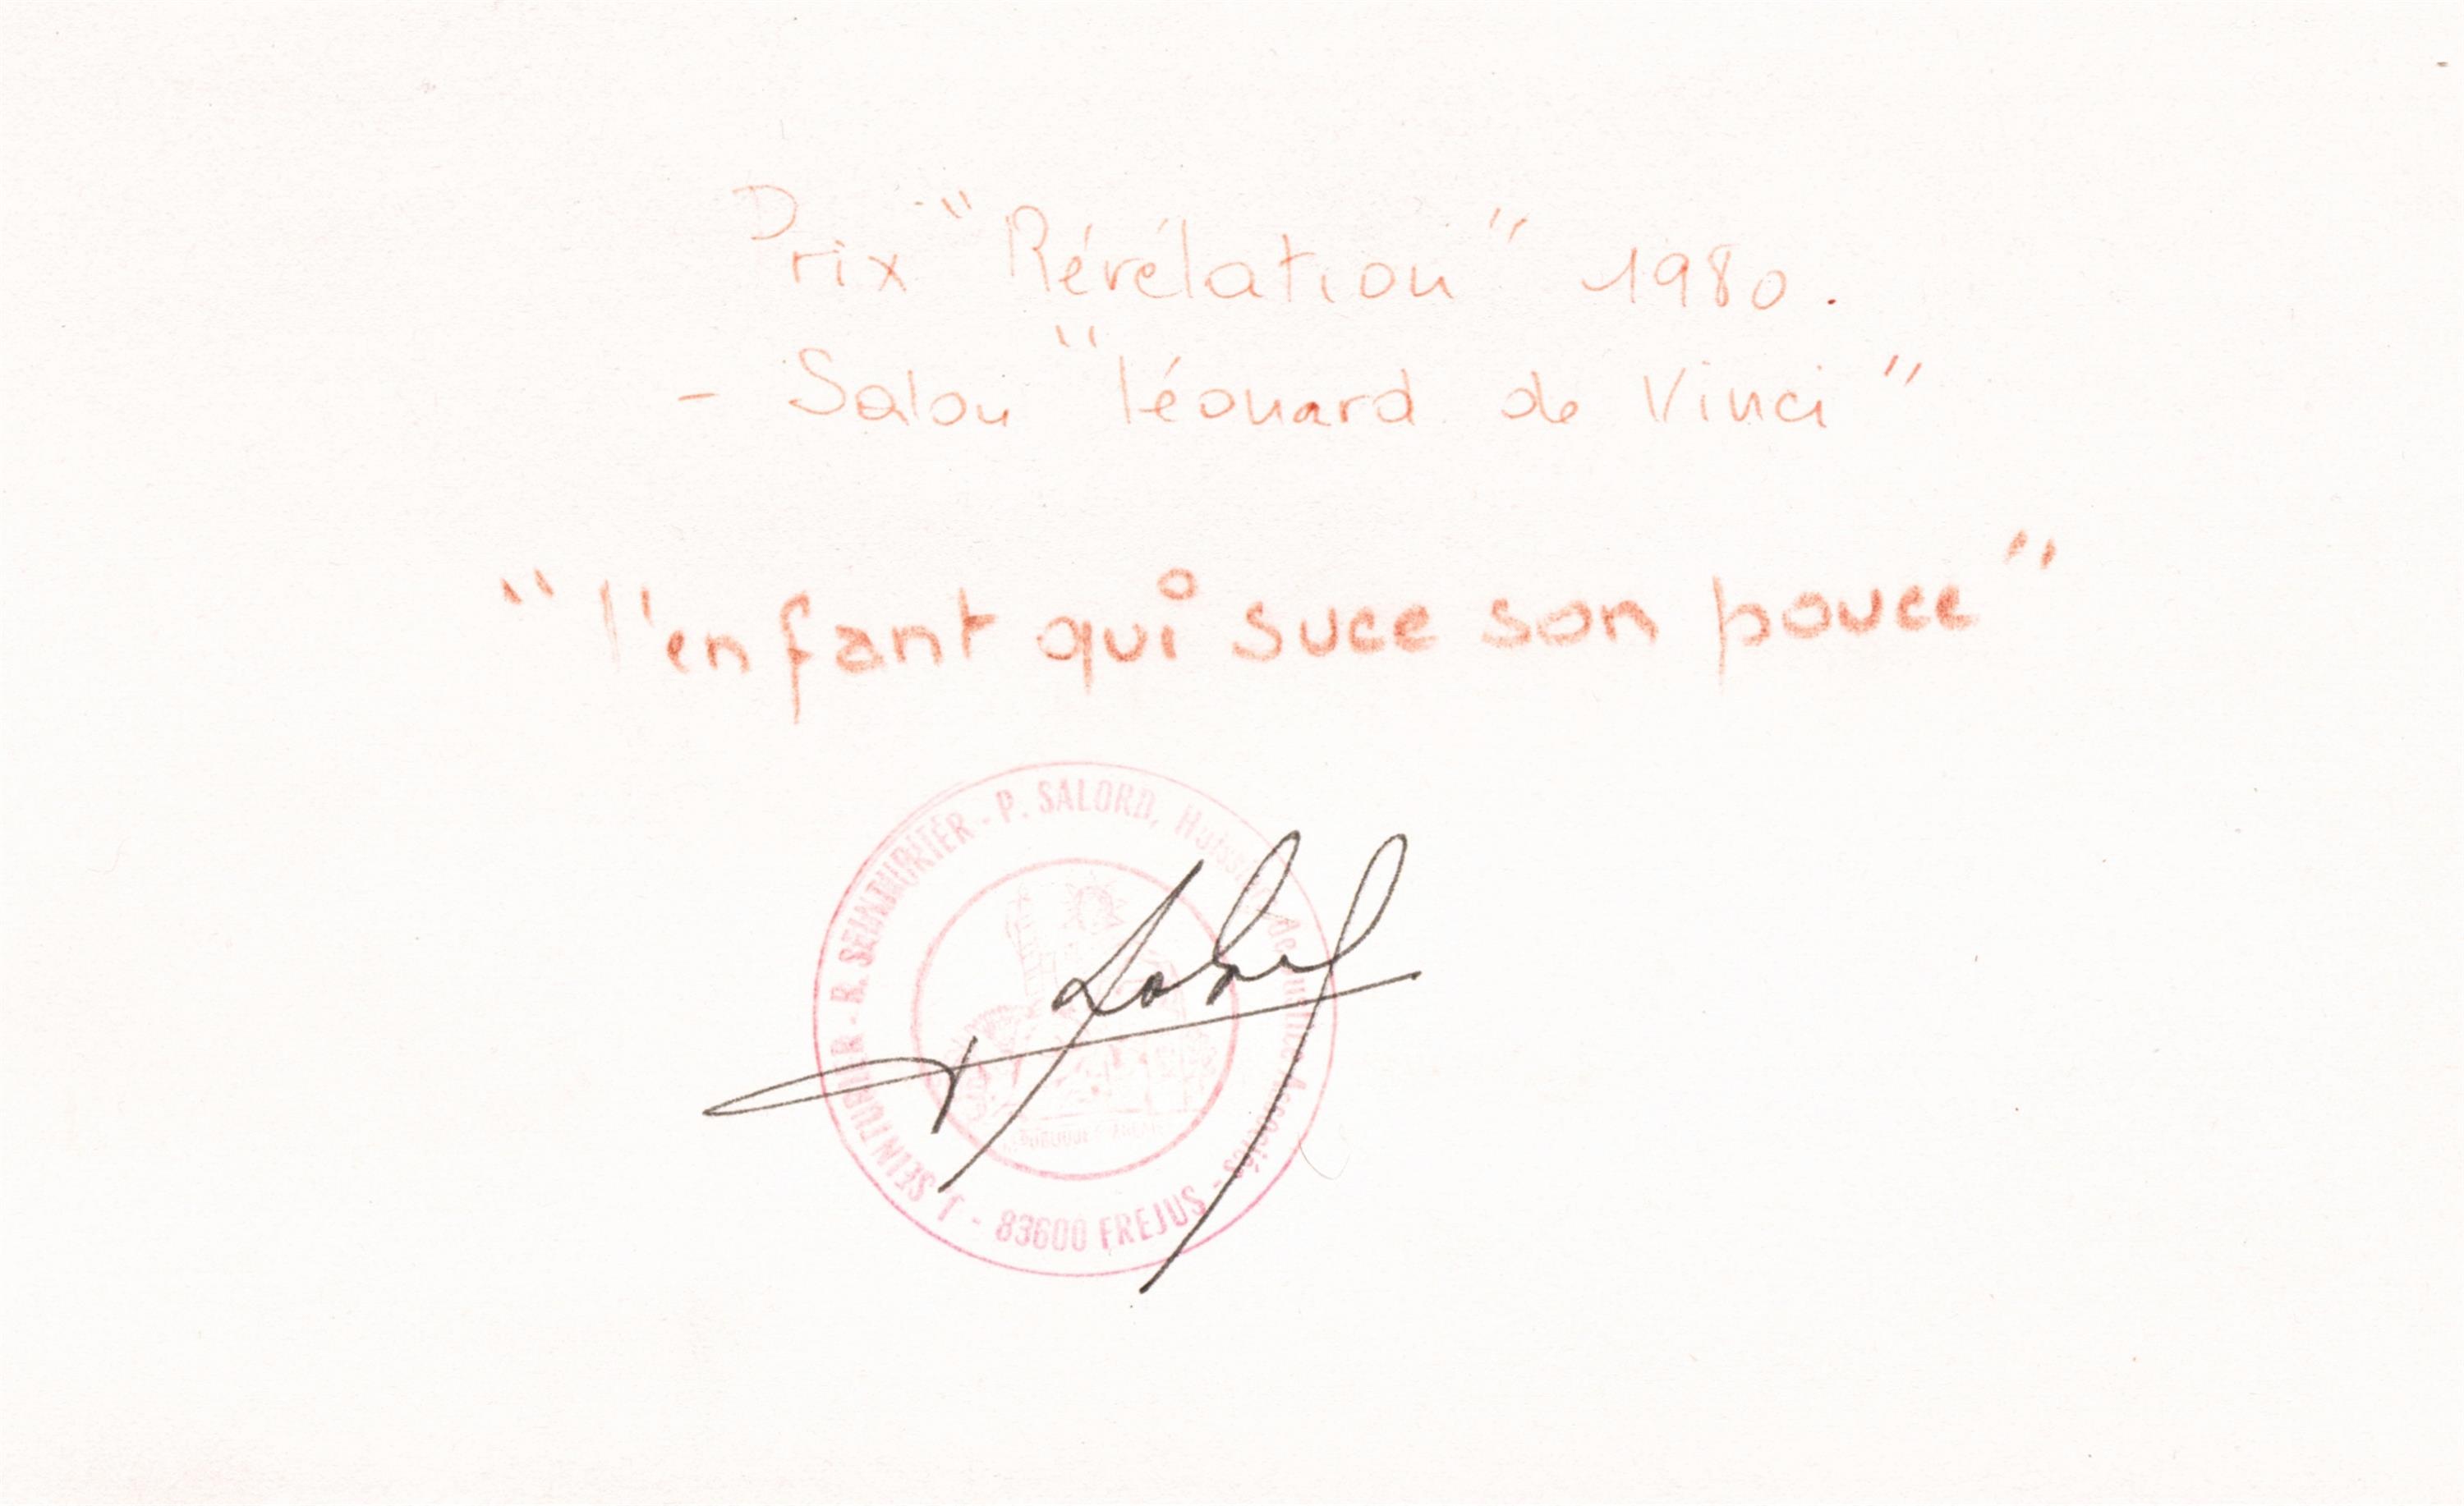 Prix "Révélation" 1980.
- Salon "léonard de Vinci"
"l'enfant qui suce son pouce"
J. SEINTURIER - R. SEINTHURITER - P. SALORD, Huissiers de Justice Associés - 83600 FREJUS -